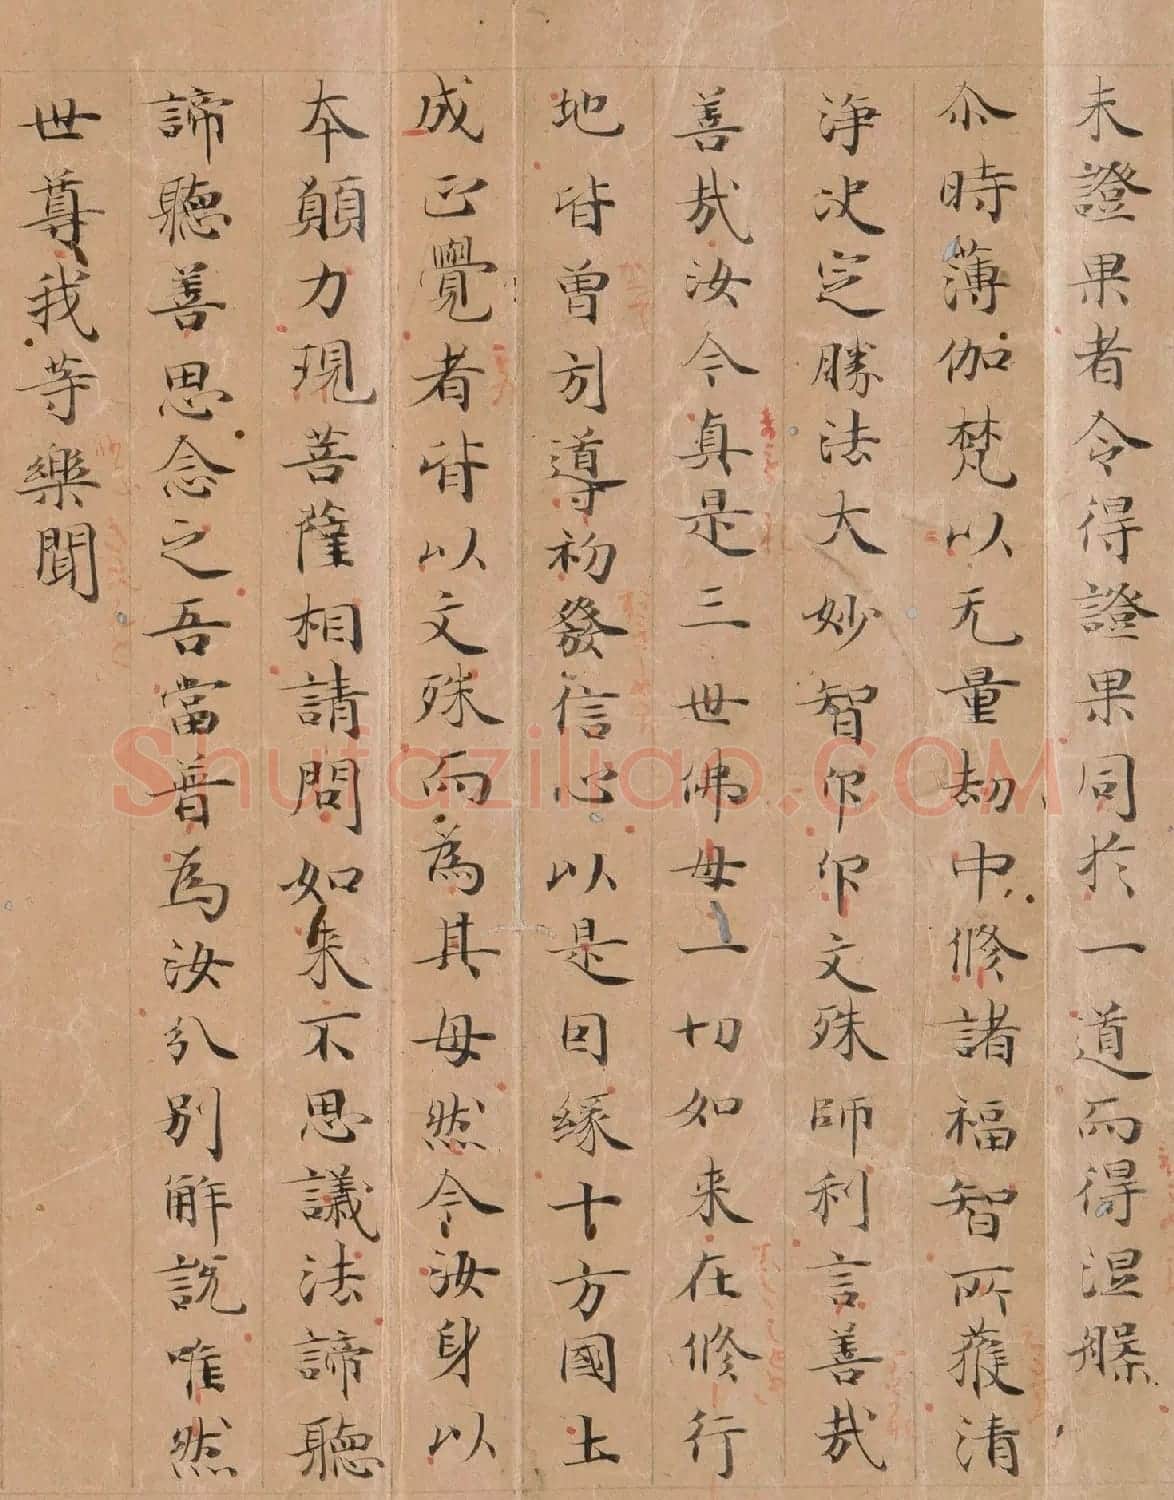 未證果者令得證果同於一道而得涅槃
尒時薄伽梵以无量劫中修諸福智所獲清
淨決定勝法大妙智印印文殊師利言善哉
善哉汝今真是三世佛母一切如来在修行
地皆曽引導初發信心以是因緣十方國土
成正覺者皆以文殊而為其母然今汝身以
本願力現菩薩相請問如来不思議法諦聽
諦聽善思念之吾當普為汝分別解說唯然
世尊我等樂聞
shufaziliao.com